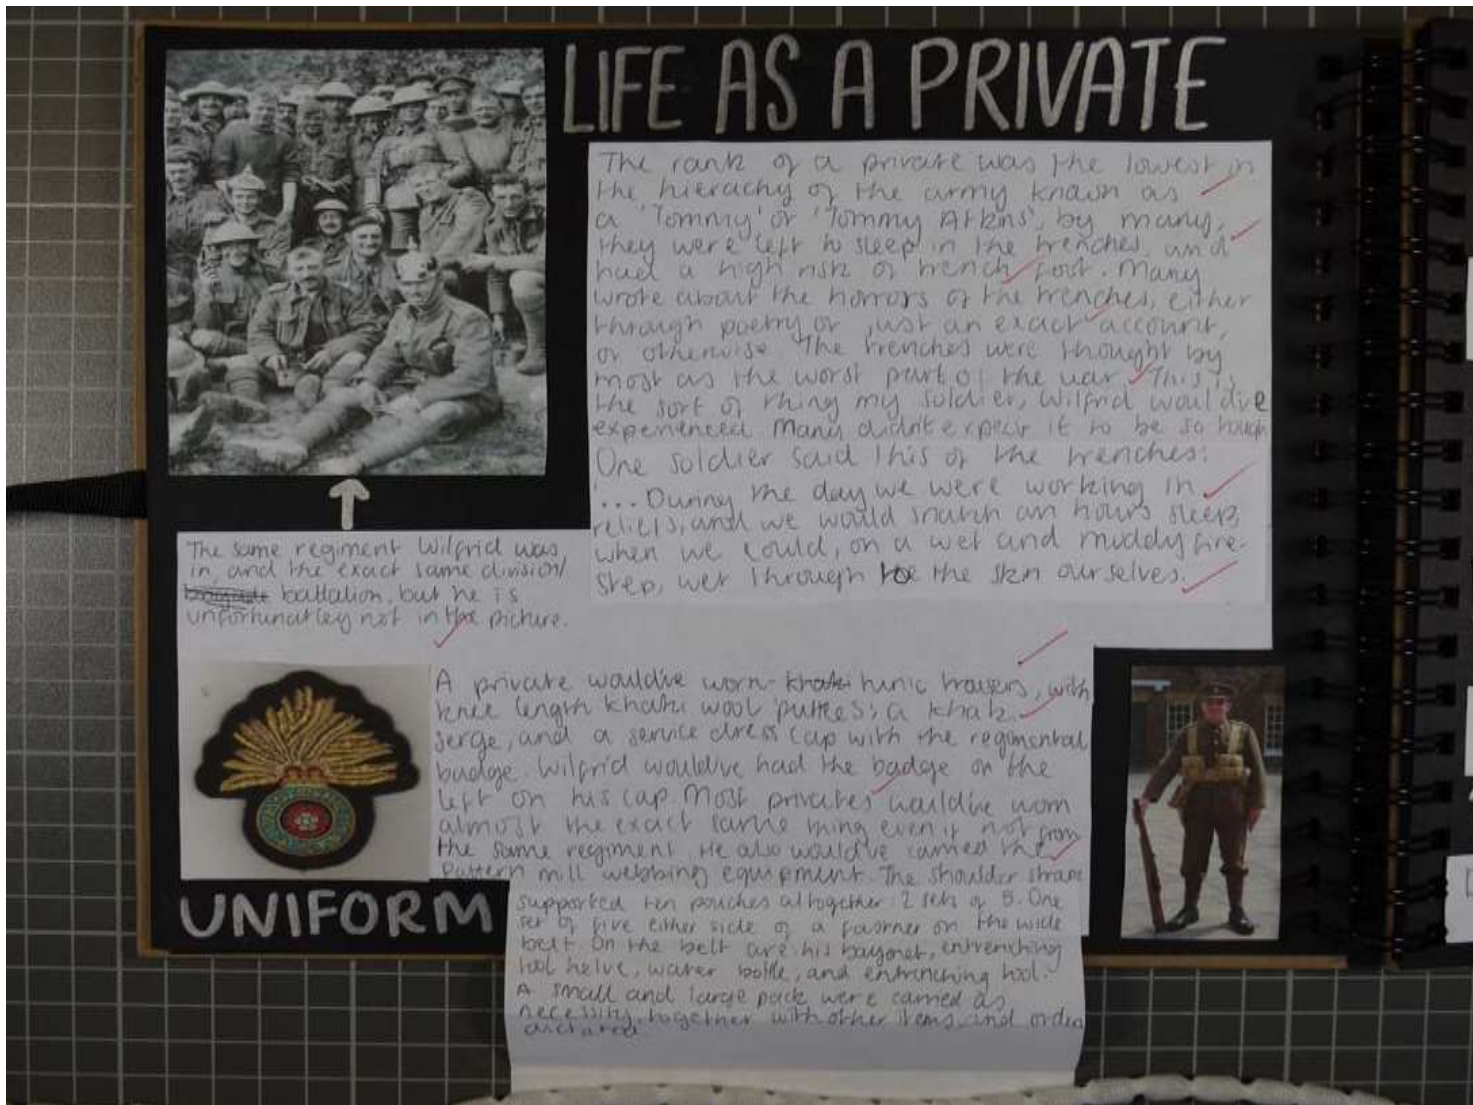 LIFE AS A PRIVATE
The rank of a private was the lowest in
the hierachy of the army known as
a 'Tommy' or 'Tommy Atkins', by many,
they were left to sleep in the trenches, and
had a high risk of trench foot. Many
wrote about the horrors of the trenches, either
through poetry or just an exact account,
or otherwise. The trenches were thought by
most as the worst part of the war. This is
the sort of thing my soldier, Wilfrid would've
experienced. Many didn't expect it to be so tough.
One soldier said this of the trenches:
'... During the day we were working in
reliefs, and we would snatch an hours sleep,
when we could, on a wet and muddy fire-
step, wet through to the skin ourselves.
The same regiment Wilfrid was
in, and the exact same division/
battalion, but he is
unfortunatley not in the picture.
A private would've worn khaki tunic trousers, with
knee length khaki wool puttees, a khaki
serge, and a service dress cap with the regimental
badge. Wilfrid would've had the badge on the
left on his cap. Most privates would've worn
almost the exact same thing even if not from
the same regiment. He also would've carried the
pattern mill webbing equipment. The shoulder straps
supported ten pouches altogether: 2 sets of 5. One
set of five either side of a fastner on the wide
belt. On the belt are his bayonet, entrenching
tool helve, water bottle, and entrenching tool.
A small and large pack were carried as
necessity, together with other items, and orders
dictated.
UNIFORM